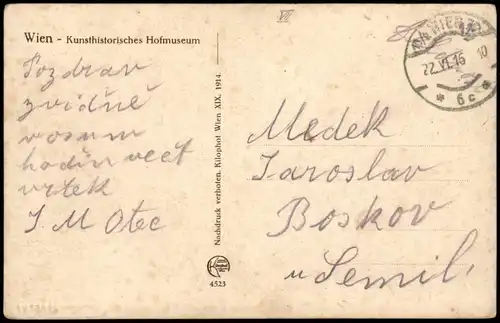 VII
Wien - Kunsthistorisches Hofmuseum
Pozdrav
zvídně
wosum
hodin vect
vrtek
J. M Otec
Nachdruck verboten. Kilophot Wien XIX. 1914.
4523
WIEN
22.VI.16 10
* 6c *
Medek
Jaroslav
Boskov
u Semil